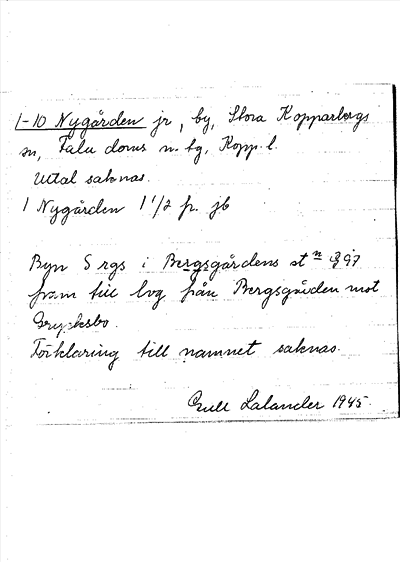 1-10 Nygården jr, by, Stora Kopparbergs
sn, Falu doms n. tg, Kopp. l.
Uttal saknas.
1 Nygården 1 1/2 fr. jb
Byn S rgs i Bergsgårdens st n 397
fram till lvg från Bergsgården mot
Grycksbo.
Förklaring till namnet saknas.
Gull Lalander 1945.